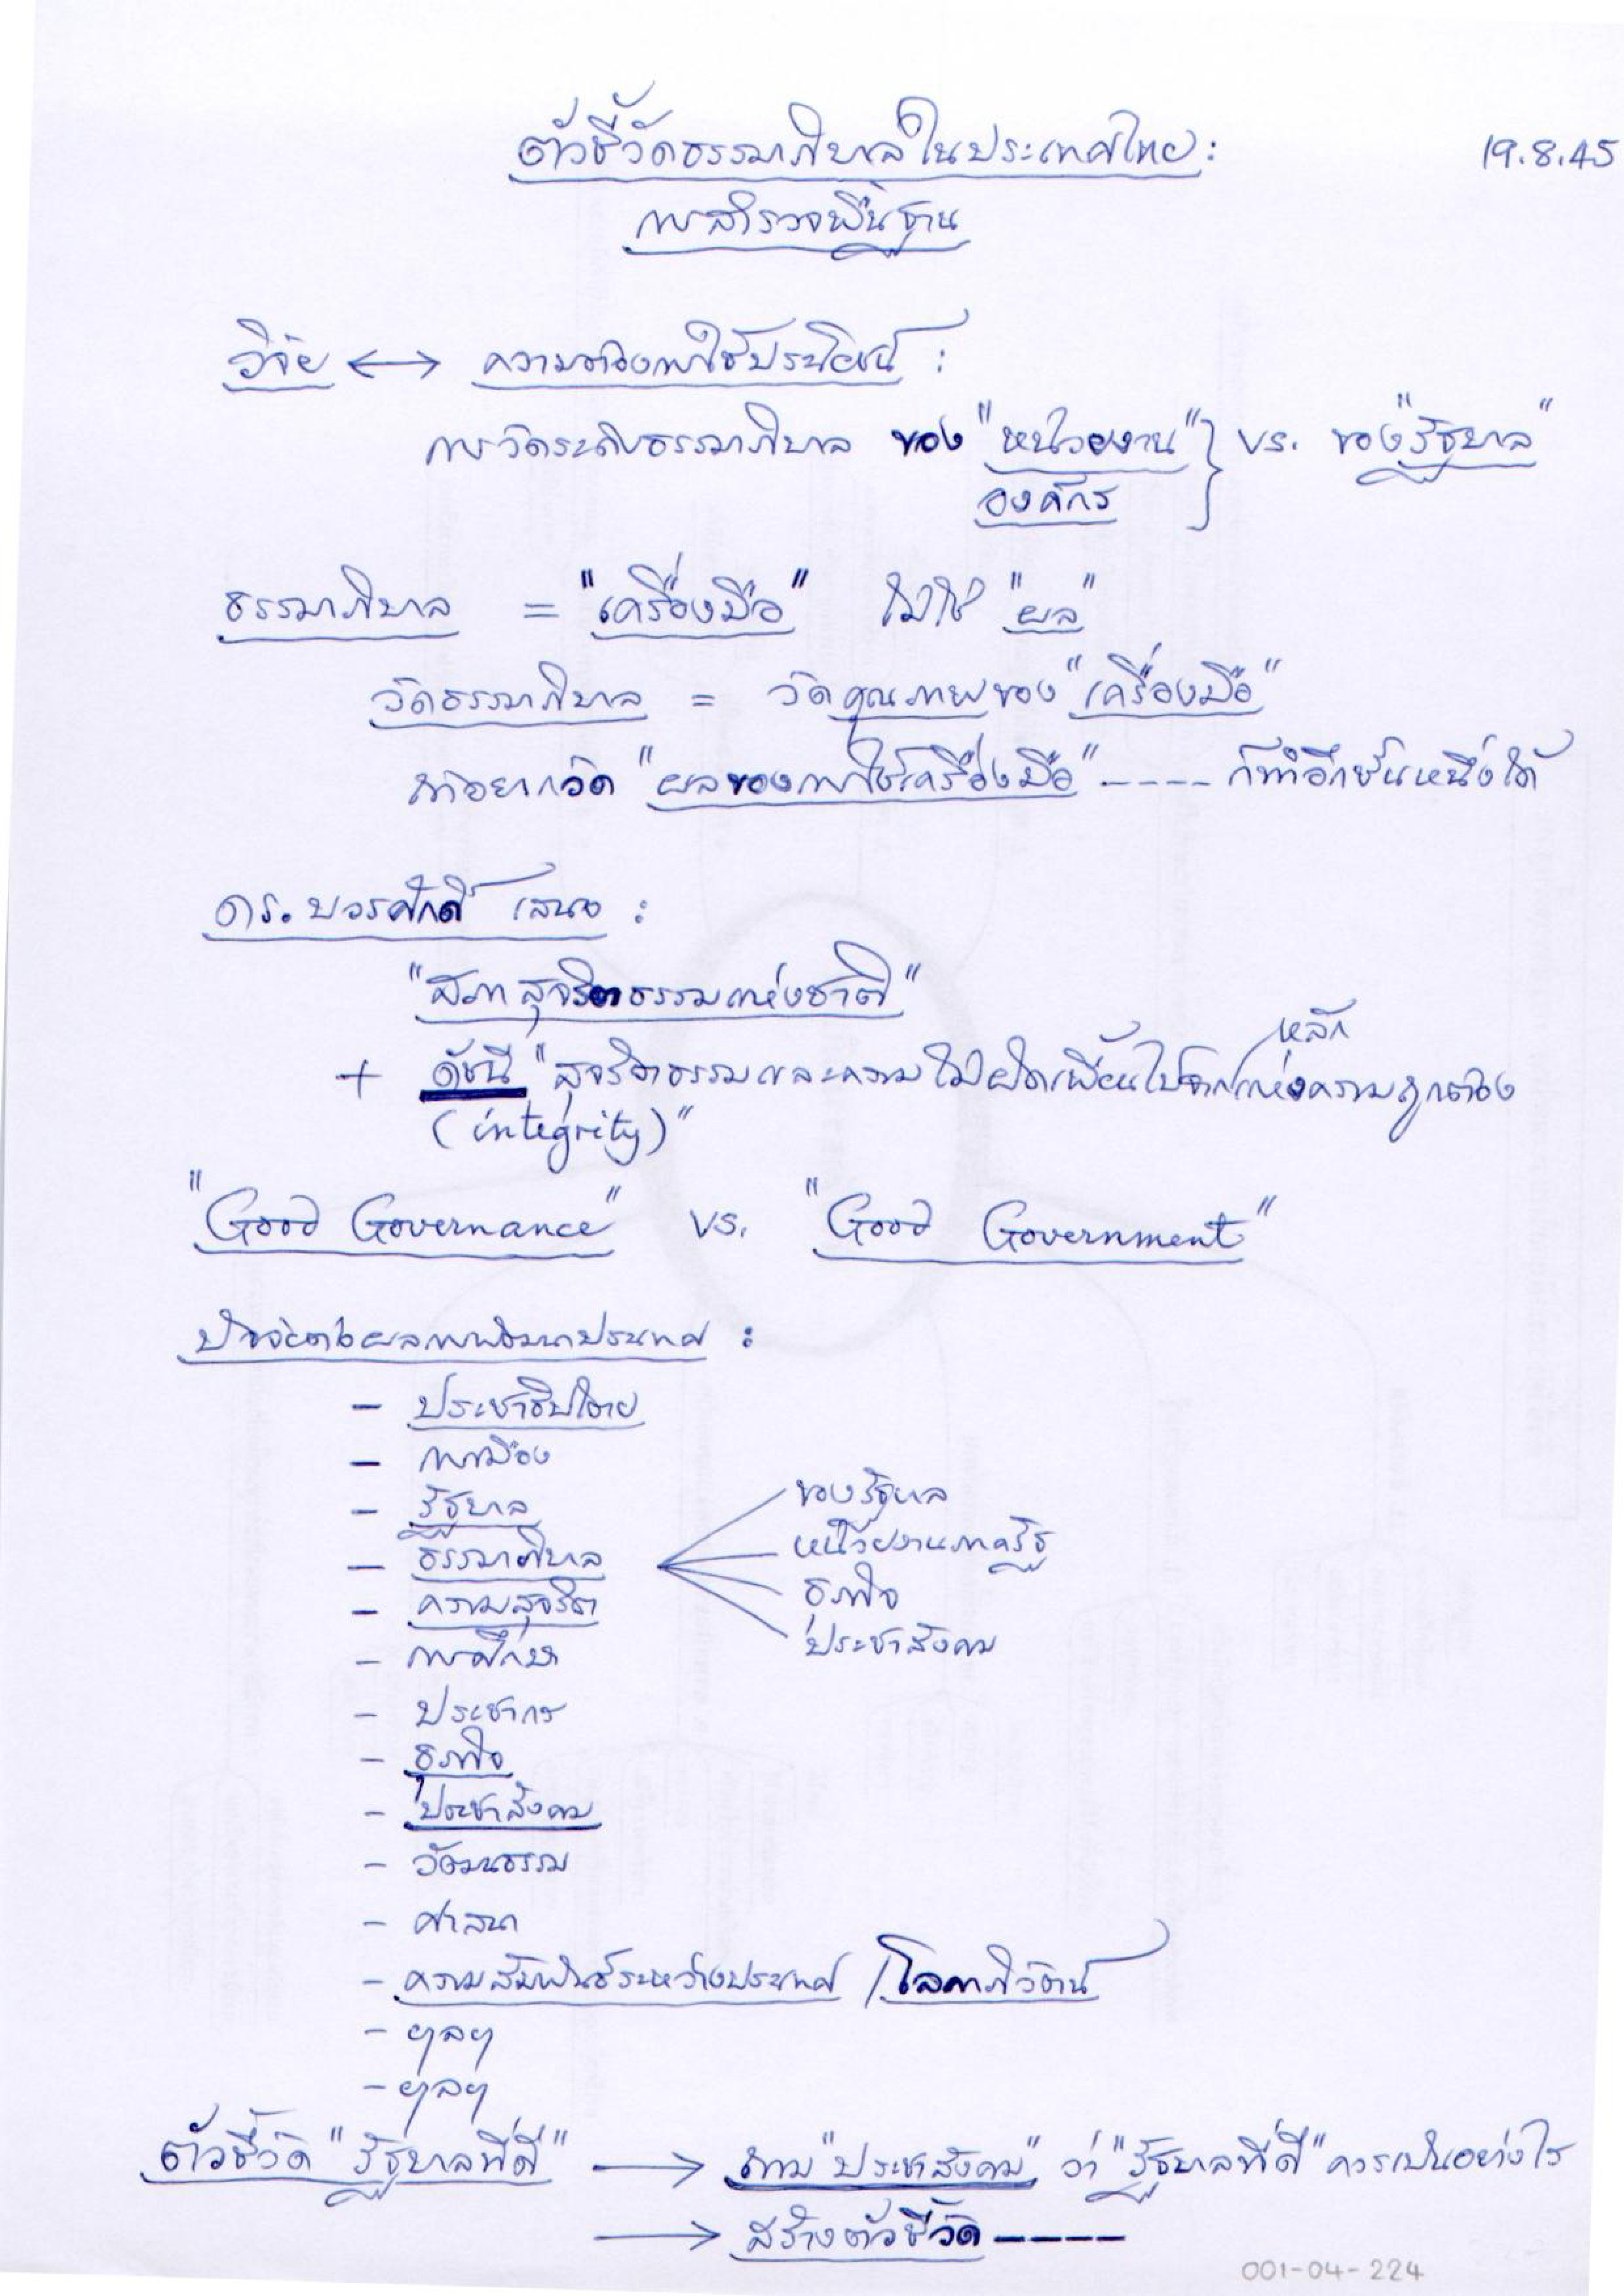 ตัวชี้วัดธรรมาภิบาลในประเทศไทย :
19.8.45
การสำรวจพื้นฐาน
วิจัย ↔ ความต้องการใช้ประโยชน์ :
การวัดระดับธรรมาภิบาล ของ "หน่วยงาน" } vs. ของ "รัฐบาล"
องค์กร
ธรรมาภิบาล = "เครื่องมือ" ไม่ใช่ "ผล"
วัดธรรมาภิบาล = วัดคุณภาพของ "เครื่องมือ"
ถ้าอยากวัด "ผลของการใช้เครื่องมือ" ---- ก็ทำอีกชั้นหนึ่งได้
ดร. บวรศักดิ์ เสนอ :
"สภาสุจริตธรรมแห่งชาติ"
หลัก
+ ดัชนี "สุจริตธรรมและความไม่ผิดเพี้ยนไปจากแห่งความถูกต้อง
(integrity)"
"Good Governance" vs. "Good Government"
ปัจจัยต่อผลการพัฒนาประเทศ :
- ประชาธิปไตย
- การเมือง
- รัฐบาล
- ธรรมาภิบาล
ของรัฐบาล
หน่วยงานภาครัฐ
ธุรกิจ
ประชาสังคม
- ความสุจริต
- การศึกษา
- ประชากร
- ธุรกิจ
- ประชาสังคม
- วัฒนธรรม
- ศาสนา
- ความสัมพันธ์ระหว่างประเทศ / โลกาภิวัตน์
- ฯลฯ
- ฯลฯ
ตัวชี้วัด "รัฐบาลที่ดี" → ถาม "ประชาสังคม" ว่า "รัฐบาลที่ดี" ควรเป็นอย่างไร
→ สร้างตัวชี้วัด ----
001-04-224